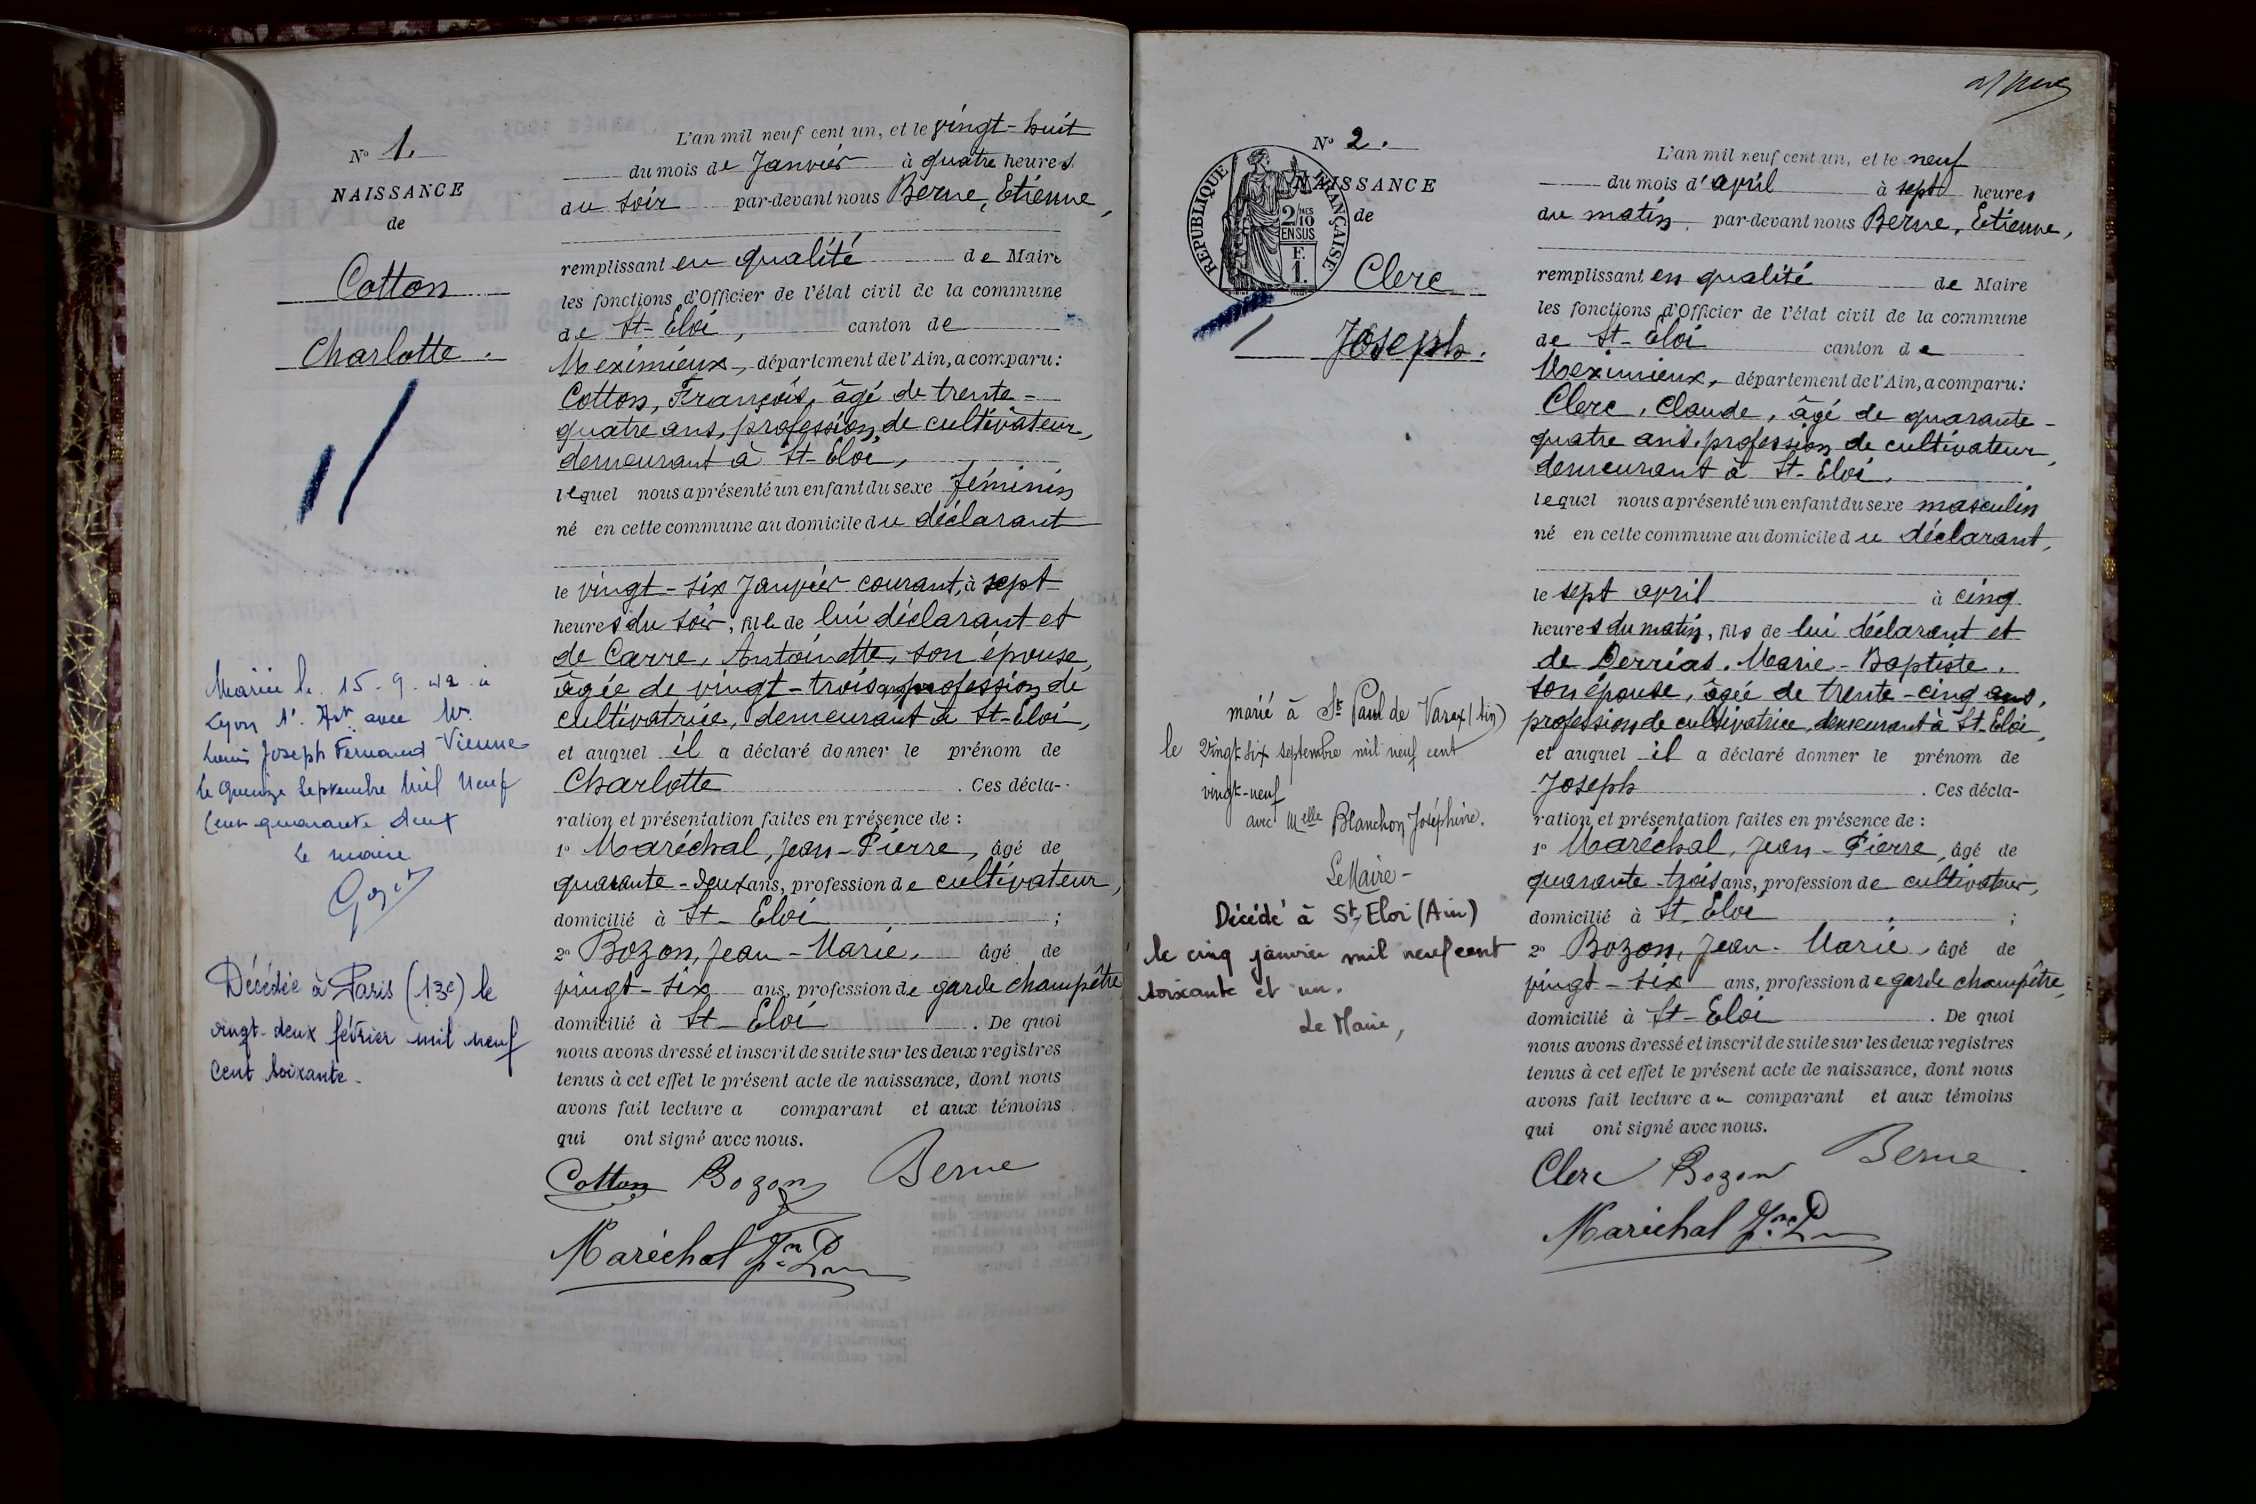 N° 1.
NAISSANCE
de
Cotton
Charlotte.
L'an mil neuf cent un, et le vingt-huit
du mois de Janvier à quatre heures
du soir par-devant nous Berne, Etienne,
remplissant en qualité de Maire
les fonctions d'Officier de l'état civil de la commune
de St-Eloi, canton de
Meximieux, département de l'Ain, a comparu:
Cotton, François, âgé de trente-
quatre ans, profession de cultivateur,
demeurant à St-Eloi,
lequel nous a présenté un enfant du sexe féminin
né en cette commune au domicile du déclarant
le vingt-six Janvier courant, à sept
heures du soir, fille de lui déclarant et
de Carre, Antoinette, son épouse,
âgée de vingt-trois ans, profession de
cultivatrice, demeurant à St-Eloi,
et auquel il a déclaré donner le prénom de
Charlotte. Ces décla-
ration et présentation faites en présence de:
1° Maréchal, Jean-Pierre, âgé de
quarante-deux ans, profession de cultivateur,
domicilié à St-Eloi;
2° Bozon, Jean-Marie, âgé de
vingt-six ans, profession de garde champêtre
domicilié à St-Eloi. De quoi
nous avons dressé et inscrit de suite sur les deux registres
tenus à cet effet le présent acte de naissance, dont nous
avons fait lecture a comparant et aux témoins
qui ont signé avec nous.
Cotton Bozon Berne
Maréchal Jn P
Mariée le 15.9.42 à
Lyon 1r Art avec Mr
Louis Joseph Fernand Vienne
le Quinze Septembre Mil Neuf
Cent quarante deux
Le maire
Décédée à Paris (13e) le
vingt-deux février mil neuf
cent soixante.
N° 2.
NAISSANCE
de
REPUBLIQUE FRANÇAISE
2/10 EN SUS
F. 1.
Clerc
Joseph.
L'an mil neuf cent un, et le neuf
du mois d'avril à sept heures
du matin par-devant nous Berne, Etienne,
remplissant en qualité de Maire
les fonctions d'Officier de l'état civil de la commune
de St-Eloi canton de
Meximieux, département de l'Ain, a comparu:
Clerc, Claude, âgé de quarante-
quatre ans, profession de cultivateur,
demeurant à St-Eloi,
lequel nous a présenté un enfant du sexe masculin
né en cette commune au domicile du déclarant,
le sept avril à cinq
heures du matin, fils de lui déclarant et
de Derrias, Marie-Baptiste,
son épouse, âgée de trente-cinq ans,
profession de cultivatrice, demeurant à St-Eloi,
et auquel il a déclaré donner le prénom de
Joseph. Ces décla-
ration et présentation faites en présence de:
1° Maréchal, Jean-Pierre, âgé de
quarante-trois ans, profession de cultivateur,
domicilié à St-Eloi;
2° Bozon, Jean-Marie, âgé de
vingt-six ans, profession de garde champêtre,
domicilié à St-Eloi. De quoi
nous avons dressé et inscrit de suite sur les deux registres
tenus à cet effet le présent acte de naissance, dont nous
avons fait lecture au comparant et aux témoins
qui ont signé avec nous.
Clerc Bozon Berne
Maréchal Jn P
marié à St Paul de Varax (Ain)
le vingt six septembre mil neuf cent
vingt-neuf
avec Melle Blanchon Joséphine.
Le Maire-
Décédé à St Eloi (Ain)
le cinq janvier mil neuf cent
soixante et un.
Le Maire,